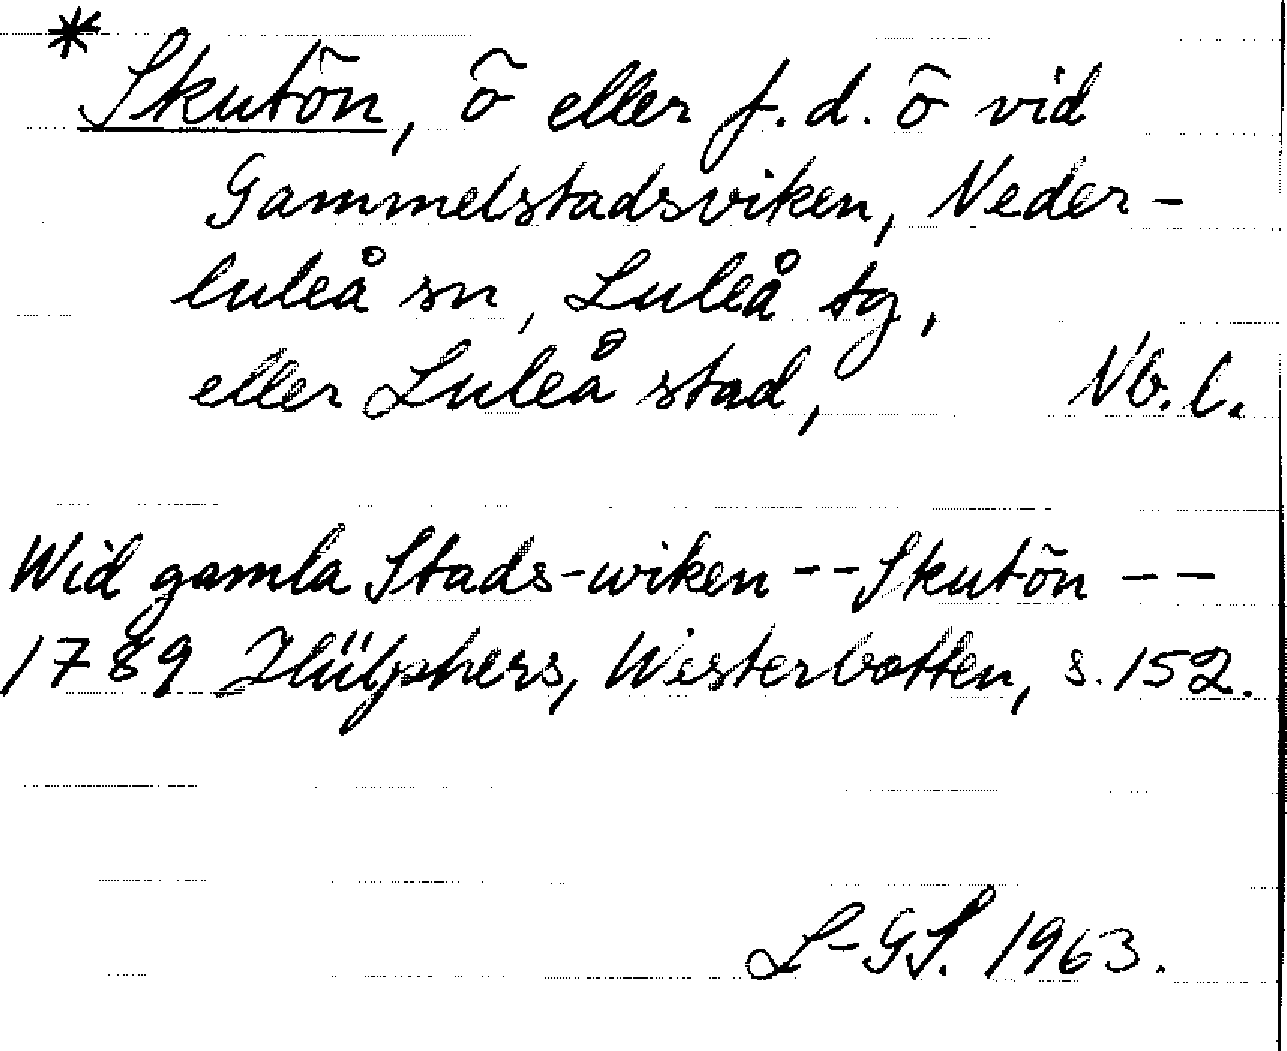 * Skutön, ö eller f.d. ö vid
Gammelstadsviken, Neder-
luleå sn, Luleå tg,
eller Luleå stad, Nb.l.
Wid gamla Stads-wiken -- Skutön --
1789 Hülphers, Westerbotten, s. 152.
L-GS. 1963.